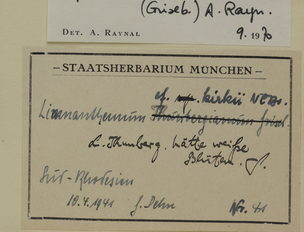 (Griseb.) A. Rayn.
DET. A. RAYNAL 9. 1970
– STAATSHERBARIUM MÜNCHEN –
cf. kirkii N.E.Br.
Limnanthemum Thunbergianum Griseb.
L. Thunberg. hätte weiße
Blüten.
Süd-Rhodesien
18.4.1941 J. Dehn Nr. 41